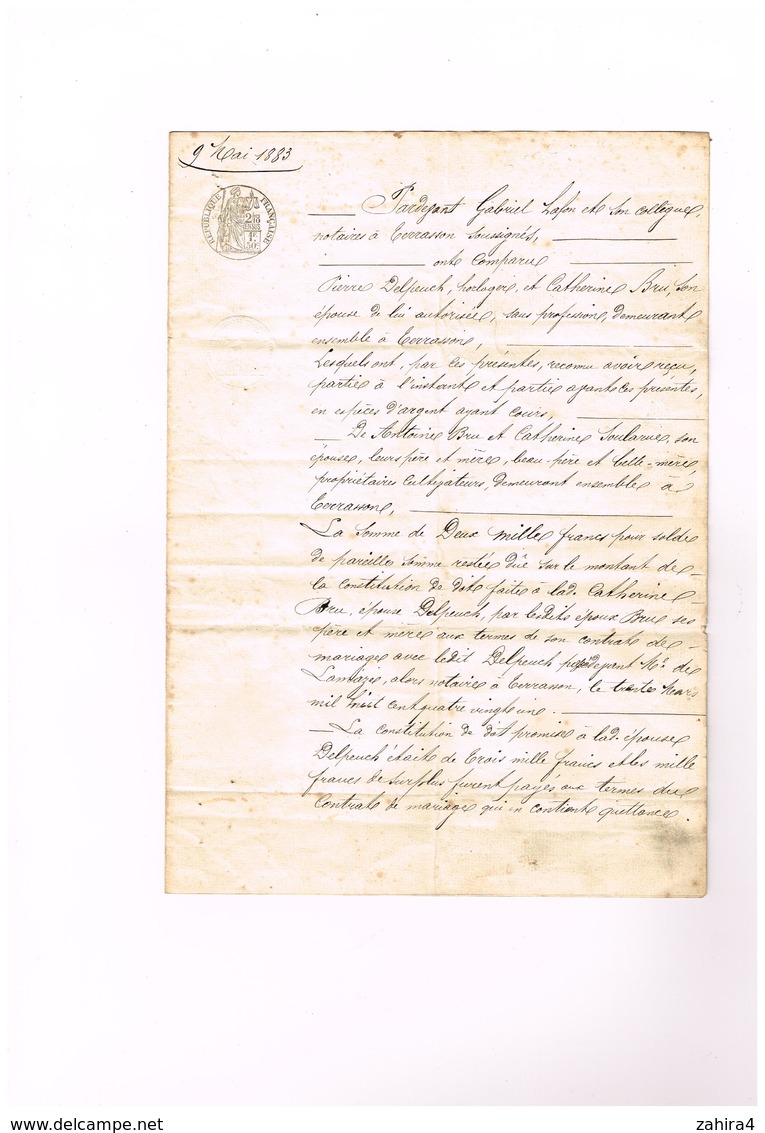 9 Mai 1883
RÉPUBLIQUE FRANÇAISE
Pardevant Gabriel Lafon et son collègue,
notaires à Terrasson soussignés,
ont Comparu
Pierre Delpeuch, horloger, et Catherine Bru, son
épouse de lui autorisée, sans profession, demeurant
ensemble à Terrasson,
Lesquels ont, par ces présentes, reconnu avoir reçu,
partie à l'instant et partie avant ces présentes,
en espèces d'argent ayant cours,
De Antoine Bru et Catherine Soularue, son
épouse, leurs père et mère, beau-père et belle-mère,
propriétaires cultivateurs, demeurant ensemble à
Terrasson,
La Somme de Deux mille francs pour solde
de pareille somme restée dûe sur le montant de
la constitution de dot faite à lad. Catherine
Bru, épouse Delpeuch, par lesdits époux Bru ses
père et mère aux termes de son contrat de
mariage avec ledit Delpeuch passé devant Me. de
Lamaze, alors notaire à Terrasson, le trente Mars
mil huit cent quatre vingt un.
La constitution de dot promise à lad. épouse
Delpeuch était de Trois mille francs et les mille
francs de surplus furent payés aux termes du
Contrat de mariage qui en contient quittance.
zahira4